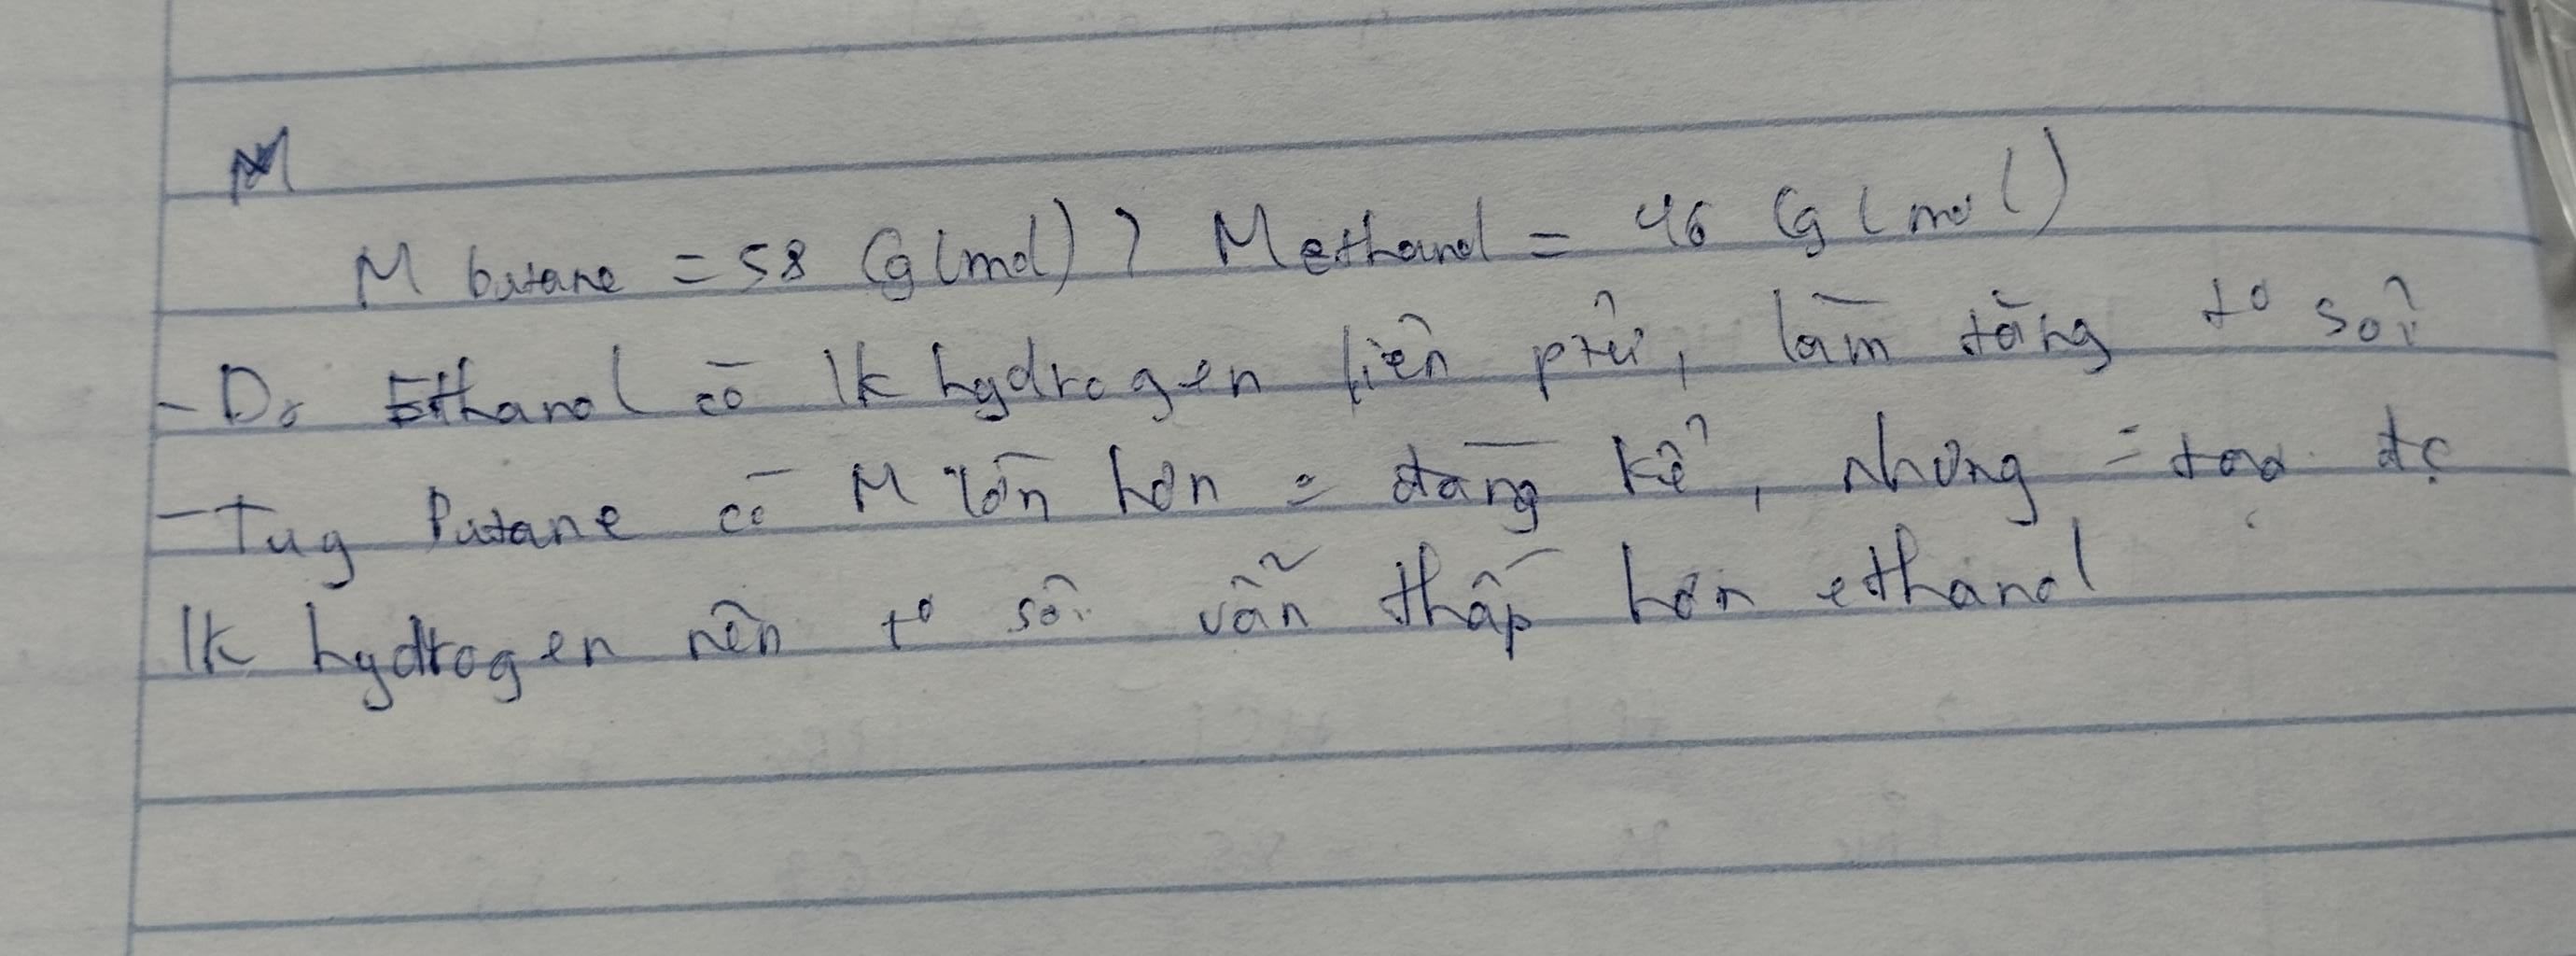 M
M butane = 58 (g/mol) > M ethanol = 46 (g/mol)
- Do Ethanol có lk hydrogen liên ptử, làm tăng tº sôi
- Tuy Butane có M lớn hơn = đáng kể, nhưng = tạo đc
lk hydrogen nên tº sôi vẫn thấp hơn ethanol